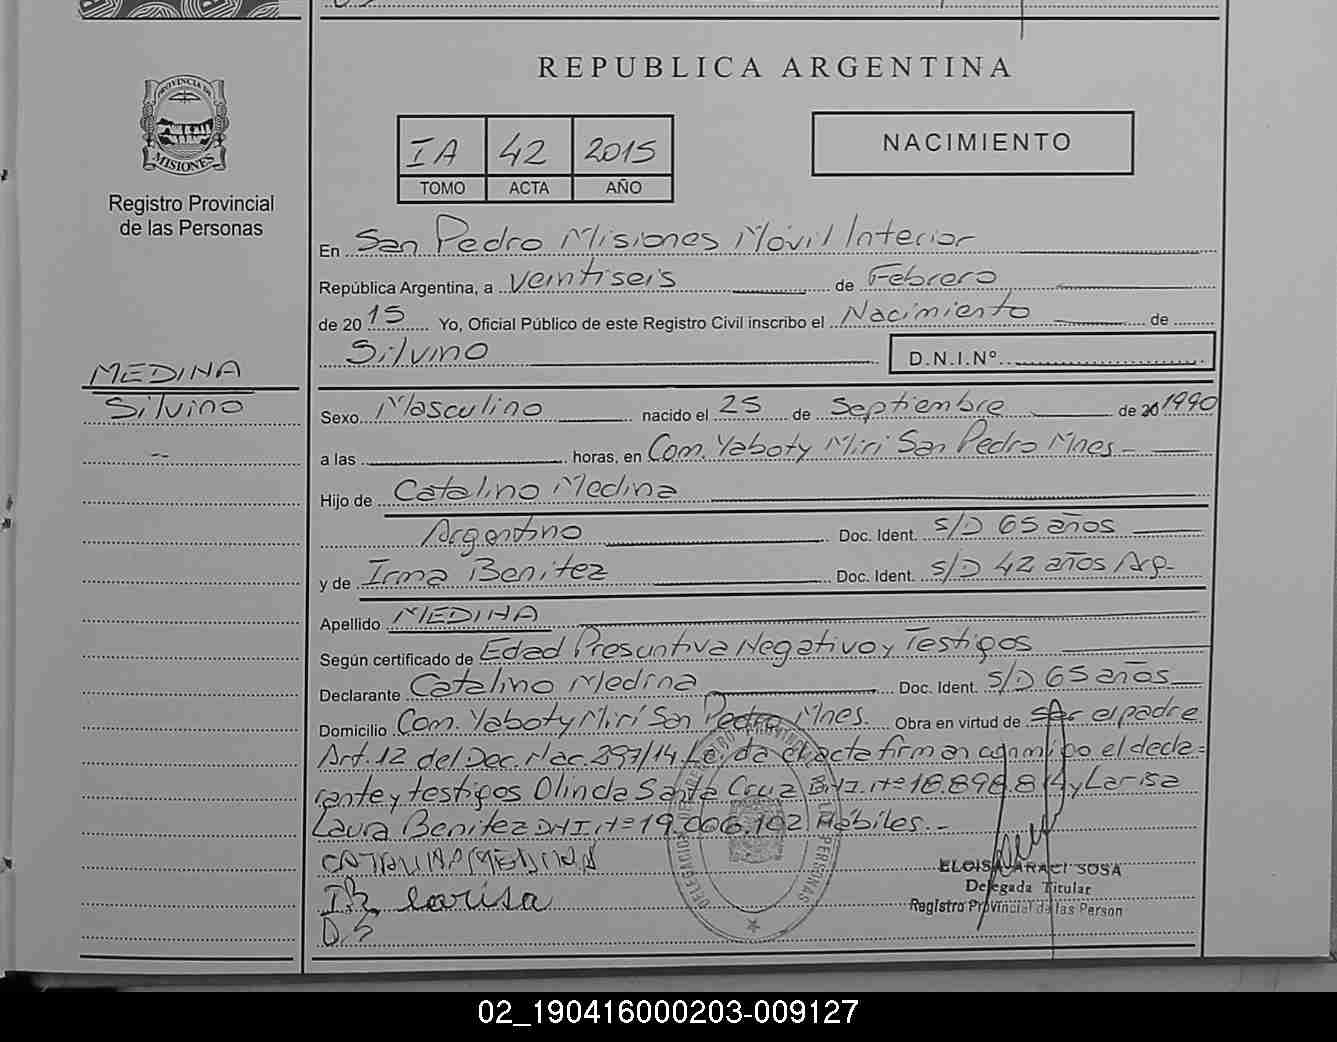 REPUBLICA ARGENTINA
PROVINCIA DE
MISIONES
Registro Provincial
de las Personas
IA 42 2015
TOMO ACTA AÑO
NACIMIENTO
En San Pedro Misiones Móvil Interior
República Argentina, a veintiseis de Febrero
de 2015 Yo, Oficial Público de este Registro Civil inscribo el Nacimiento de
Silvino D.N.I.Nº
MEDINA
Silvino
--
Sexo Masculino nacido el 25 de Septiembre de 20 1990
a las horas, en Com. Yaboty Miri San Pedro Mnes -
Hijo de Catalino Medina
Argentino Doc. Ident. S/D 65 años
y de Irma Benitez Doc. Ident. S/D 42 años Arg.
Apellido MEDINA
Según certificado de Edad Presuntiva Negativo y Testigos
Declarante Catalino Medina Doc. Ident. S/D 65 años
Domicilio Com. Yaboty Mirí San Pedro Mnes. Obra en virtud de ser el padre
Art. 12 del Dec. Nac. 297/14 Leida el acta firman conmigo el decla=
rante y testigos Olinda Santa Cruz D.N.I. nº 18.898.8 y Larisa
Laura Benitez DNI. nº 19.066.102 Habiles.-
larisa
ELOISA ARACI SOSA
Delegada Titular
Registro Provincial de las Person
02_190416000203-009127